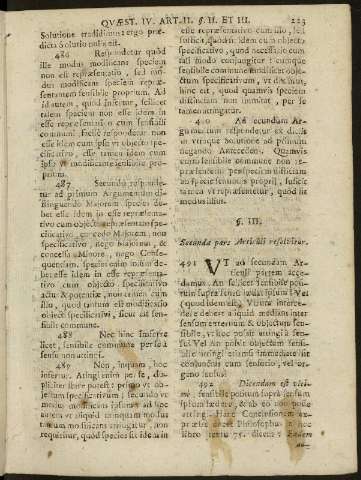 QUÆST. IV. ART. II. §. II. ET III. 223
Solutione tradidimus: ergo præ-
dicta Solutio nulla est.
486 Respondetur quòd
ille modus modificans speciem
non est repræsentatio, sed mo-
dus modificans speciem repræ-
sentantem sensibile proprium. Ad
id autem, quod infertur, scilicet
talem speciem non esse idem in
esse repræsentativi cum sensibili
communi, facilè respondetur non
esse idem cum ipso vt objecto spe-
cificativo, esse tamen idem cum
ipso vt modificante sensibile pro-
prium.
487 Secundò responde-
tur ad primum Argumentum di-
stinguendo Majorem: species de-
bet esse idem in esse repræsenta-
tivo cum objecto repræsentatio
specificativo, concedo Majorem, non
specificativo, nego Majorem, &
concessa Minore, nego Conse-
quentiam. species enim solum de-
bet esse idem in esse repræsenta-
tivi cum objecto specificativo
actu & potentiâ, non tamen cum
illo, quod tantum est modificatio
objecti specificativi, sicut est sen-
sibile commune.
488 Nec hinc
licet, sensibile commune per se à
sensu non attingi.
489 Non, inquam, hoc
infertur. Attingi enim per se, du-
pliciter stare potest: primò vt ob-
jectum specificativum; secundò vt
modus modificans ipsum: ad hoc
autem vt aliquid tanquam modus
tantum modificans attingatur, non
requiritur, quòd species sit idem in
esse repræsentativo cum illo, sed
sufficit, quòd sit idem cum objecto
specificativo, quod necessariò cum
tali modo conjungitur: cumque
sensibile commune conjunctum
sit cum objecto specificativo,
hinc est, quod quamvis speciem
distinctam non immitat, per se
tamen attingatur.
490 Ad secundum Ar-
gumentum respondetur ex dictis
in vtraque Solutione ad primum
negando Antecedens. Quamvis
enim sensibile commune non re-
præsentetur per speciem distinctam
ab specie sensibilis proprij, sufficit
tamen vt repræsentetur, quòd sit
modus illius.
§. III.
Secunda pars Articuli resolvitur.
491 VT ad secundam Ar-
ticuli partem acce-
damus. An scilicet sensibile posi-
tum supra sensum
(quod
debere à quid medians inter
sensum externum & objectum sen-
sibile, vt hoc possit attingi à sen-
su? Vel An possit objectum sen-
sibile attingi etiamsi immediatè sit
conjunctum cum sensorio, vel or-
gano sensus?
492 Dicendum est vlti-
mò, sensibile positum supra sensum
ipsum lædere, & ab eo non posse
attingi. Hanc Conclusionem ex-
præssè docet Philosophus 2. hoc
libro textu 75. dicens: Eadem
au-